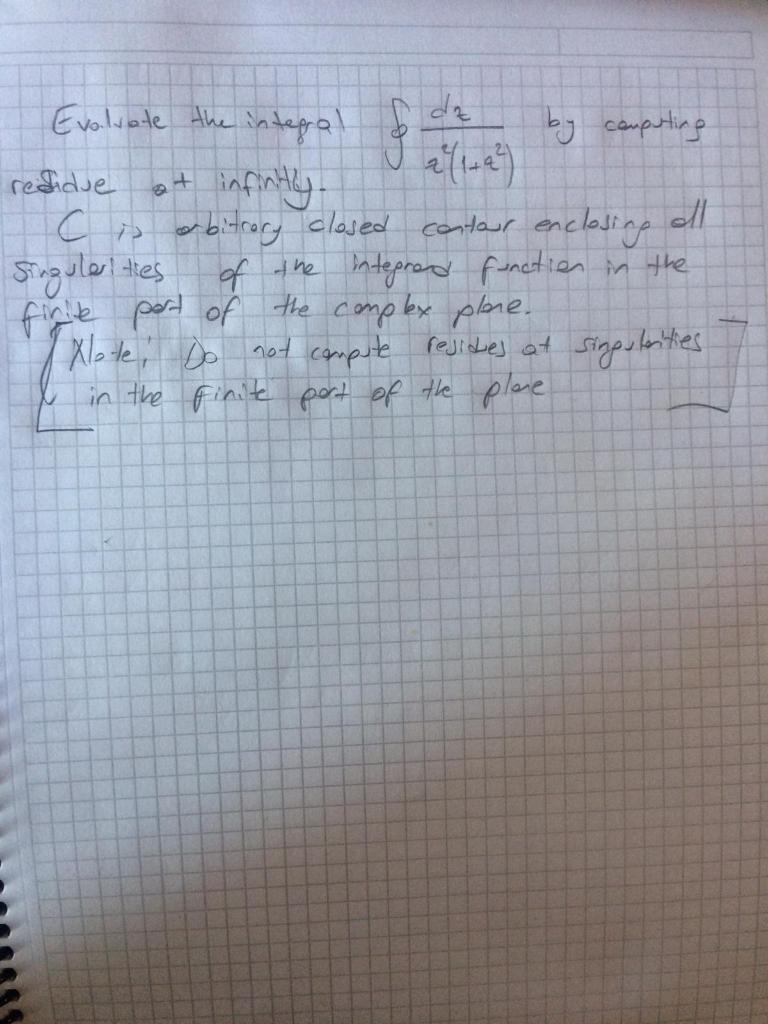 Evaluate the integral ∮ dz / z²(1+z²) by computing
residue at infinitly.
C is arbitrary closed contour enclosing all
singularities of the integrand function in the
finite part of the complex plane.
[Note; Do not compute residues at singularities
in the finite part of the plane]